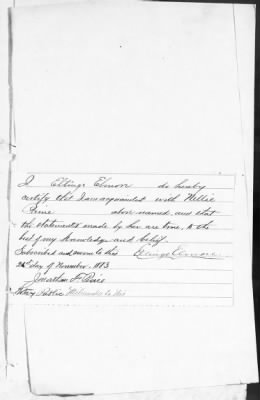 I Ellinor Elmore do hereby
certify that I am acquainted with Nellie
above named and that
the statements made by her are true, to the
best of my knowledge and belief.
Subscribed and sworn to this
day of November, 1883
Jonathan
Notary Public